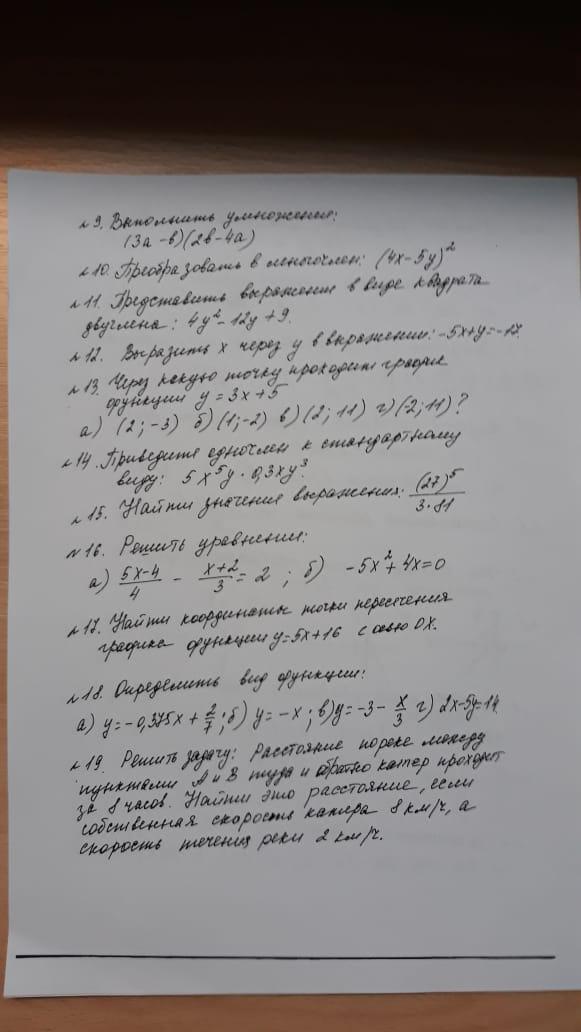 №9. Выполнить умножение:
(3a-b)(2b-4a)
№10. Преобразовать в многочлен: (4x-5y)²
№11. Представить выражение в виде квадрата
двучлена: 4y²-12y+9.
№12. Выразить x через y в выражении: -5x+y=-17.
№13. Через какую точку проходит график
функции y=3x+5
а) (2;-3) б) (1;-2) в) (2;11) г) (-2;11)?
№14. Приведите одночлен к стандартному
виду: 5x⁵y · 0,3xy³.
№15. Найти значение выражения: (27)⁵/(3·81)
№16. Решить уравнения:
а) (5x-4)/4 - (x+2)/3 = 2; б) -5x²+4x=0
№17. Найти координаты точки пересечения
графика функции y=5x+16 с осью OX.
№18. Определить вид функции:
а) y=-0,375x+2/7; б) y=-x; в) y=-3-x/3 г) 2x-5y=14.
№19. Решить задачу: Расстояние по реке между
пунктами А и В туда и обратно катер проходит
за 8 часов. Найти это расстояние, если
собственная скорость катера 8 км/ч, а
скорость течения реки 2 км/ч.